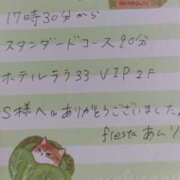 17時30分から
スタンダードコース90分
ホテルララ33 VIP 2F
S様へ♡ありがとうございました。
fiesta あんり